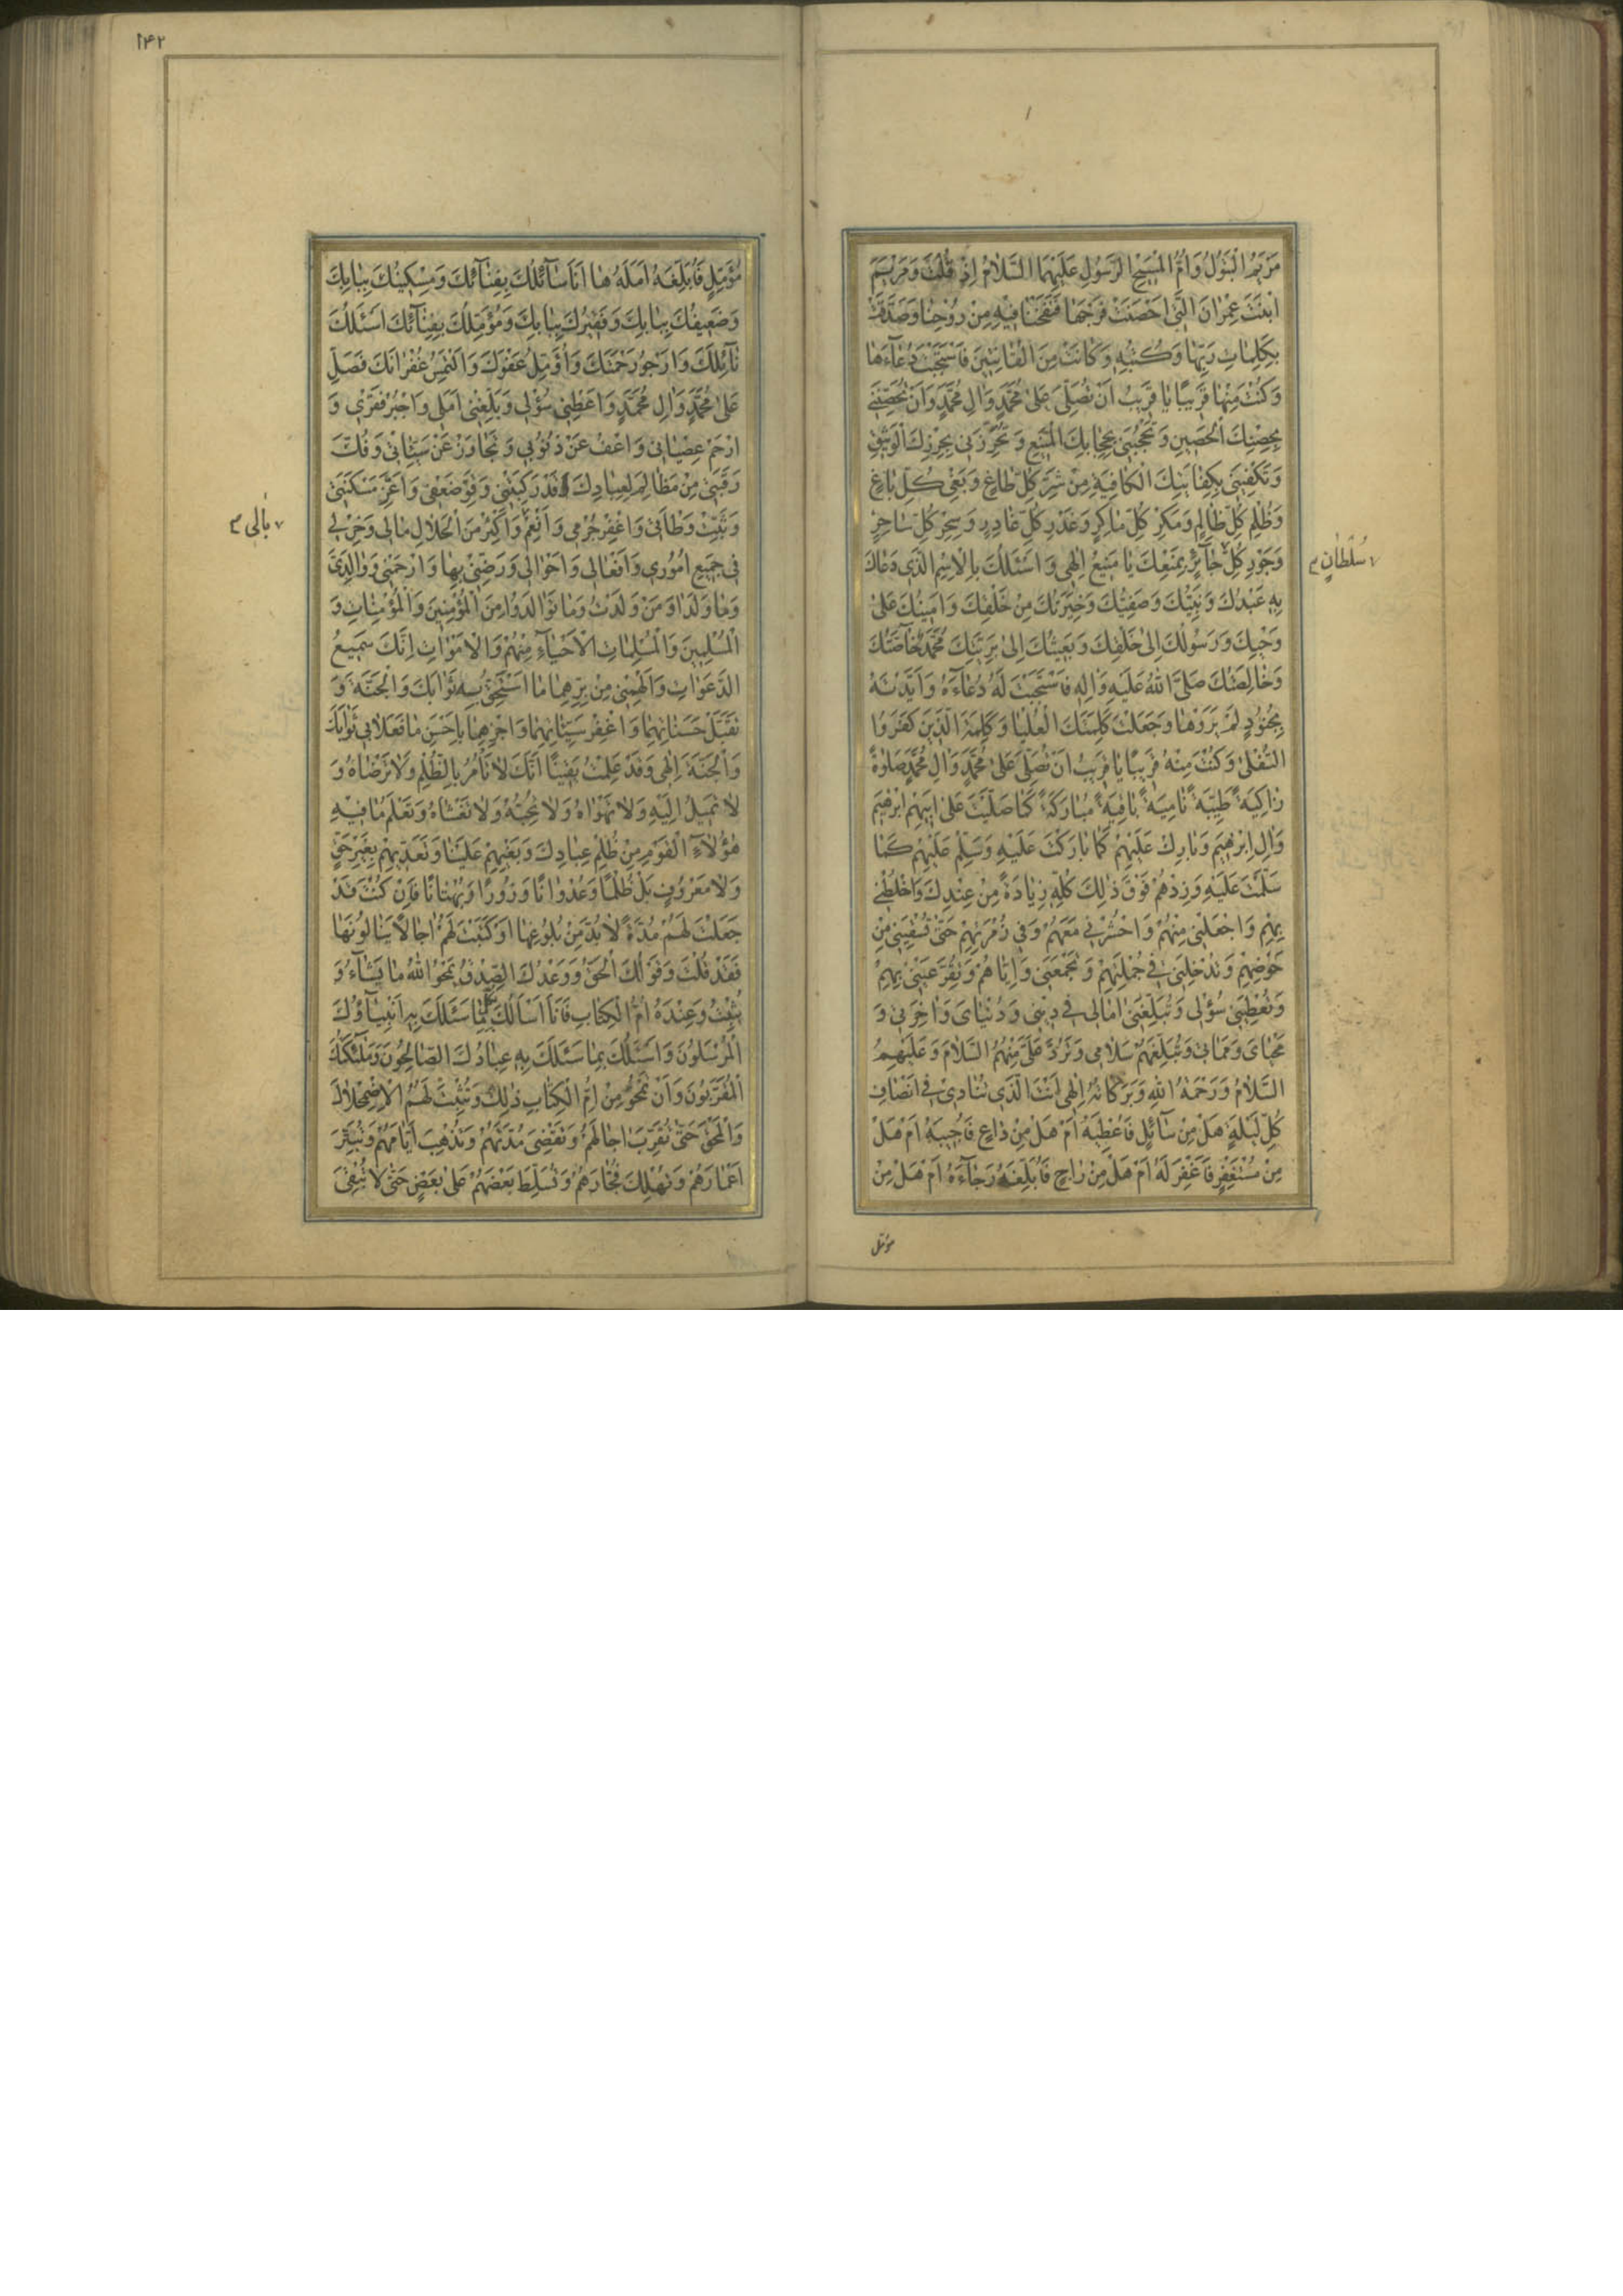 مَرْيَمُ الْبَتُولُ وَاُمُّ الْمَسِيحِ الرَّسُولِ عَلَيْهِمَا السَّلَامُ اِذْ قُلْتَ وَمَرْيَمَ
ابْنَتَ عِمْرَانَ الَّتِي اَحْصَنَتْ فَرْجَهَا فَنَفَخْنَا فِيهِ مِنْ رُوحِنَا وَصَدَّقَتْ
بِكَلِمَاتِ رَبِّهَا وَكُتُبِهِ وَكَانَتْ مِنَ الْقَانِتِينَ فَاسْتَجَبْتَ دُعَآءَهَا
وَكُنْتَ مِنْهَا قَرِيبًا يَا قَرِيبُ اَنْ تُصَلِّيَ عَلَى مُحَمَّدٍ وَالِ مُحَمَّدٍ وَاَنْ تُحَصِّنَنِي
بِحِصْنِكَ الْحَصِينِ وَتَحْجُبَنِي بِحِجَابِكَ الْمَنِيعِ وَتُحْرِزَنِي بِحِرْزِكَ الْوَثِيقِ
وَتَكْفِيَنِي بِكِفَايَتِكَ الْكَافِيَةِ مِنْ شَرِّ كُلِّ طَاغٍ وَبَغْيِ كُلِّ بَاغٍ
وَظُلْمِ كُلِّ ظَالِمٍ وَمَكْرِ كُلِّ مَاكِرٍ وَغَدْرِ كُلِّ غَادِرٍ وَسِحْرِ كُلِّ سَاحِرٍ
وَجَوْرِ كُلِّ جَآئِرٍ بِمَنْعِكَ يَا مَنِيعُ اِلٰهِي وَاَسْئَلُكَ بِالْاِسْمِ الَّذِي دَعَاكَ
سُلْطَانٍ
بِهِ عَبْدُكَ وَنَبِيُّكَ وَصَفِيُّكَ وَخِيَرَتُكَ مِنْ خَلْقِكَ وَاَمِينُكَ عَلَى
وَحْيِكَ وَرَسُولُكَ اِلَى خَلْقِكَ وَبَعِيثُكَ اِلَى بَرِيَّتِكَ مُحَمَّدٌ خَآصَّتُكَ
وَخَالِصَتُكَ صَلَّى اللهُ عَلَيْهِ وَالِهِ فَاسْتَجَبْتَ لَهُ دُعَآءَهُ وَاَيَّدْتَهُ
بِجُنُودٍ لَمْ يَرَوْهَا وَجَعَلْتَ كَلِمَتَكَ الْعُلْيَا وَكَلِمَةَ الَّذِينَ كَفَرُوا
السُّفْلَى وَكُنْتَ مِنْهُ قَرِيبًا يَا قَرِيبُ اَنْ تُصَلِّيَ عَلَى مُحَمَّدٍ وَالِ مُحَمَّدٍ صَلٰوةً
زَاكِيَةً طَيِّبَةً نَامِيَةً بَاقِيَةً مُبَارَكَةً كَمَا صَلَّيْتَ عَلَى اَبِيهِمْ اِبْرٰهِيمَ
وَالِ اِبْرٰهِيمَ وَبَارِكْ عَلَيْهِمْ كَمَا بَارَكْتَ عَلَيْهِ وَسَلِّمْ عَلَيْهِمْ كَمَا
سَلَّمْتَ عَلَيْهِ وَزِدْهُمْ فَوْقَ ذٰلِكَ كُلِّهِ زِيَادَةً مِنْ عِنْدِكَ وَاخْلُطْنِي
بِهِمْ وَاجْعَلْنِي مِنْهُمْ وَاحْشُرْنِي مَعَهُمْ وَفِي زُمْرَتِهِمْ حَتَّى تَسْقِيَنِي مِنْ
حَوْضِهِمْ وَتُدْخِلَنِي فِي جُمْلَتِهِمْ وَتَجْمَعَنِي وَاِيَّاهُمْ وَتُقِرَّ عَيْنِي بِهِمْ
وَتُعْطِيَنِي سُؤْلِي وَتُبَلِّغَنِي اٰمَالِي فِي دِينِي وَدُنْيَايَ وَاٰخِرَتِي وَ
مَحْيَايَ وَمَمَاتِي وَتُبَلِّغَهُمْ سَلَامِي وَتَرُدَّ عَلَيَّ مِنْهُمُ السَّلَامَ وَعَلَيْهِمُ
السَّلَامُ وَرَحْمَةُ اللهِ وَبَرَكَاتُهُ اِلٰهِي اَنْتَ الَّذِي تُنَادِي فِي اَنْصَافِ
كُلِّ لَيْلَةٍ هَلْ مِنْ سَآئِلٍ فَاُعْطِيَهُ اَمْ هَلْ مِنْ دَاعٍ فَاُجِيبَهُ اَمْ هَلْ
مِنْ مُسْتَغْفِرٍ فَاَغْفِرَ لَهُ اَمْ هَلْ مِنْ رَاجٍ فَاُبَلِّغَهُ رَجَآءَهُ اَمْ هَلْ مِنْ
مؤمل
١۴٢
مُؤَمِّلٍ فَاُبَلِّغَهُ اَمَلَهُ هَا اَنَا سَآئِلُكَ بِفِنَآئِكَ وَمِسْكِينُكَ بِبَابِكَ
وَضَعِيفُكَ بِبَابِكَ وَفَقِيرُكَ بِبَابِكَ وَمُؤَمِّلُكَ بِفِنَآئِكَ اَسْئَلُكَ
نَآئِلَكَ وَاَرْجُو رَحْمَتَكَ وَاُؤَمِّلُ عَفْوَكَ وَاَلْتَمِسُ غُفْرَانَكَ فَصَلِّ
عَلَى مُحَمَّدٍ وَالِ مُحَمَّدٍ وَاَعْطِنِي سُؤْلِي وَبَلِّغْنِي اَمَلِي وَاجْبُرْ فَقْرِي وَ
ارْحَمْ عِصْيَانِي وَاعْفُ عَنْ ذُنُوبِي وَتَجَاوَزْ عَنْ سَيِّئَاتِي وَفُكَّ
رَقَبَتِي مِنْ مَظَالِمَ لِعِبَادِكَ فَقَدْ رَكِبَتْنِي وَقَوِّ ضَعْفِي وَاَعِزَّ مَسْكَنَتِي
وَثَبِّتْ وَطْاَتِي وَاغْفِرْ جُرْمِي وَاَنْعِمْ وَاَكْثِرْ مِنَ الْحَلَالِ مَالِي وَخِرْ لِي
بَالِي
فِي جَمِيعِ اُمُورِي وَاَفْعَالِي وَاَحْوَالِي وَرَضِّنِي بِهَا وَارْحَمْنِي وَوَالِدَيَّ
وَمَا وَلَدَا وَمَنْ وَلَدْتُ وَمَا تَوَالَدُوا مِنَ الْمُؤْمِنِينَ وَالْمُؤْمِنَاتِ وَ
الْمُسْلِمِينَ وَالْمُسْلِمَاتِ الْاَحْيَآءِ مِنْهُمْ وَالْاَمْوَاتِ اِنَّكَ سَمِيعُ
الدَّعَوَاتِ وَاَلْهِمْنِي مِنْ بِرِّهِمَا مَا اَسْتَحِقُّ بِهِ ثَوَابَكَ وَالْجَنَّةَ وَ
تَقَبَّلْ حَسَنَاتِهِمَا وَاغْفِرْ سَيِّئَاتِهِمَا وَاجْزِهِمَا بِاَحْسَنِ مَا فَعَلَا بِي ثَوَابَكَ
وَالْجَنَّةَ اِلٰهِي وَقَدْ عَلِمْتُ يَقِينًا اَنَّكَ لَا تَاْمُرُ بِالظُّلْمِ وَلَا تَرْضَاهُ وَ
لَا تَمِيلُ اِلَيْهِ وَلَا تَهْوَاهُ وَلَا تُحِبُّهُ وَلَا تَغْشَاهُ وَتَعْلَمُ مَا فِيهِ
هٰؤُلَآءِ الْقَوْمِ مِنْ ظُلْمِ عِبَادِكَ وَبَغْيِهِمْ عَلَيْنَا وَتَعَدِّيهِمْ بِغَيْرِ حَقٍّ
وَلَا مَعْرُوفٍ بَلْ ظُلْمًا وَعُدْوَانًا وَزُورًا وَبُهْتَانًا فَاِنْ كُنْتَ قَدْ
جَعَلْتَ لَهُمْ مُدَّةً لَا بُدَّ مِنْ بُلُوغِهَا اَوْ كَتَبْتَ لَهُمْ اٰجَالًا يَنَالُونَهَا
فَقَدْ قُلْتَ وَقَوْلُكَ الْحَقُّ وَوَعْدُكَ الصِّدْقُ يَمْحُو اللهُ مَا يَشَآءُ وَ
يُثْبِتُ وَعِنْدَهُ اُمُّ الْكِتَابِ فَاَنَا اَسْاَلُكَ بِكُلِّ مَا سَئَلَكَ بِهِ اَنْبِيَآؤُكَ
الْمُرْسَلُونَ وَاَسْئَلُكَ بِمَا سَئَلَكَ بِهِ عِبَادُكَ الصَّالِحُونَ وَمَلٰئِكَتُكَ
الْمُقَرَّبُونَ وَاَنْ تَمْحُوَ مِنْ اُمِّ الْكِتَابِ ذٰلِكَ وَتُثْبِتَ لَهُمُ الْاِضْمِحْلَالَ
وَالْمَحْقَ حَتَّى تُقَرِّبَ اٰجَالَهُمْ وَتَقْضِيَ مُدَّتَهُمْ وَتُذْهِبَ اَيَّامَهُمْ وَتُبَتِّرَ
اَعْمَارَهُمْ وَتُهْلِكَ فُجَّارَهُمْ وَتُسَلِّطَ بَعْضَهُمْ عَلَى بَعْضٍ حَتَّى لَا تُبْقِيَ